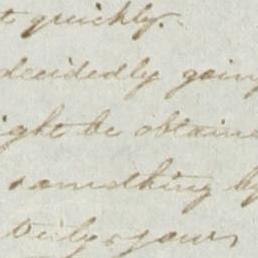 t quickly.
decidedly going
ight be obtaine
something by
truly yours